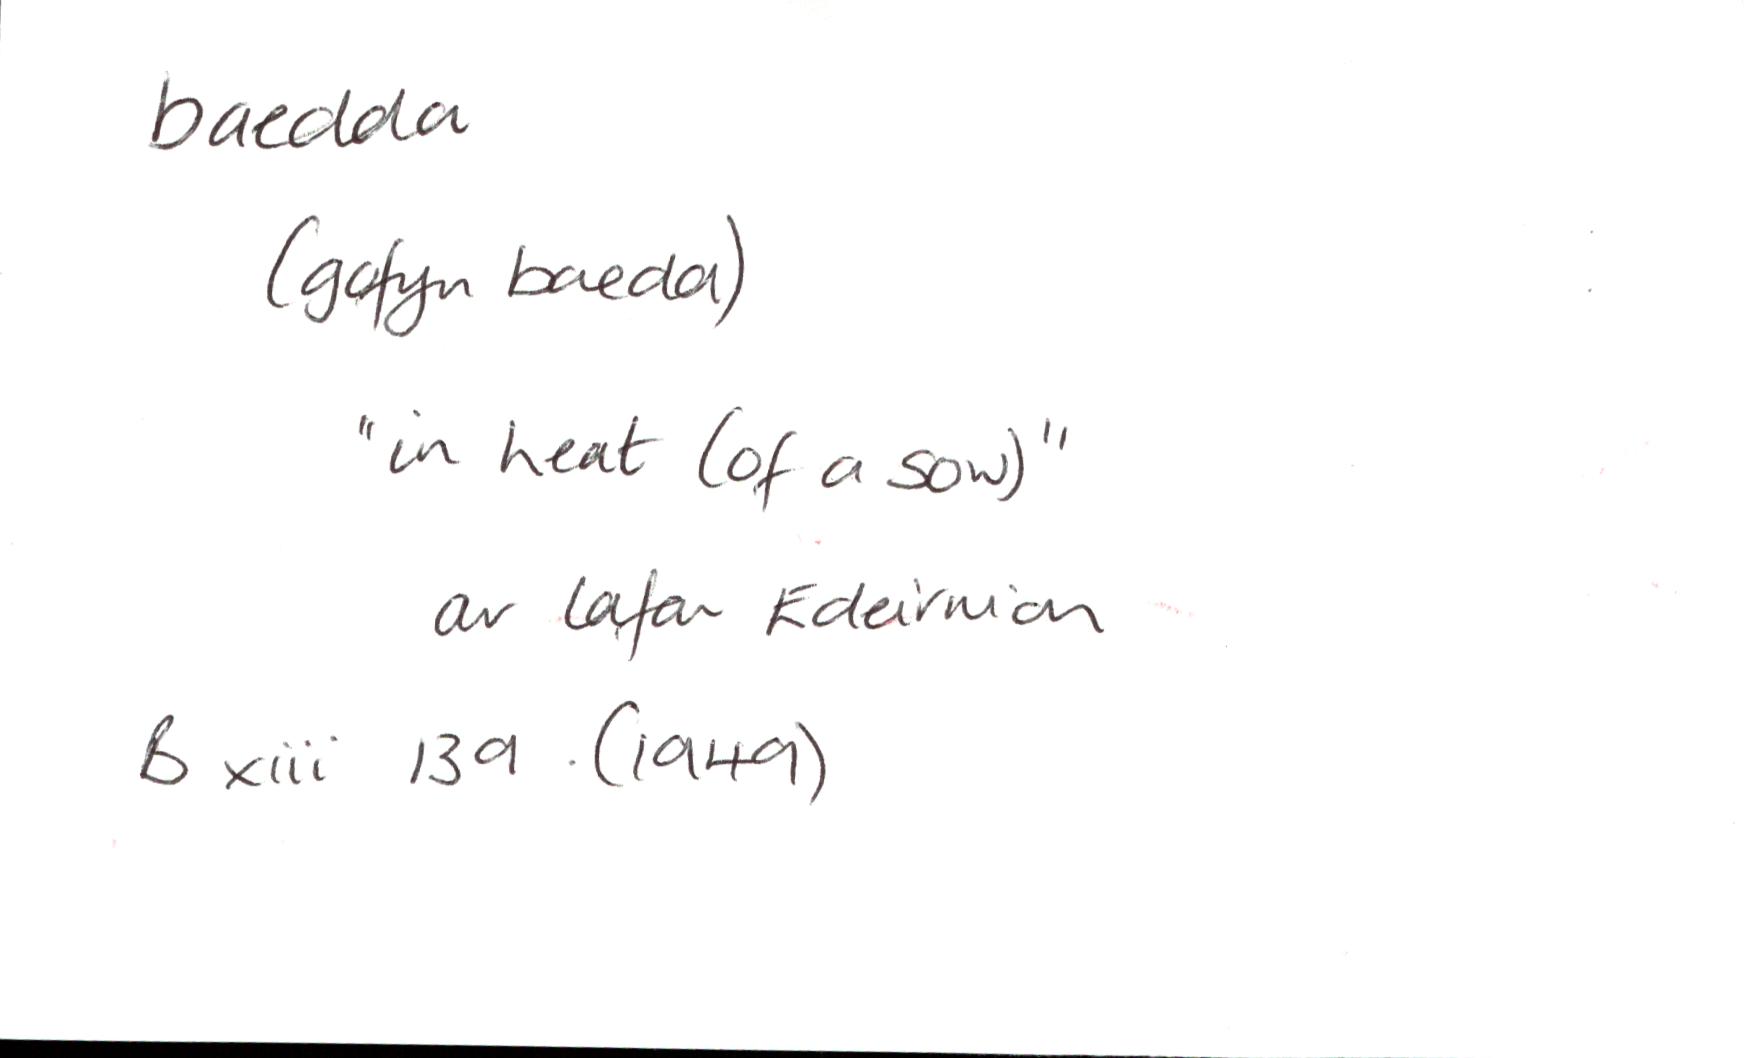 baedda
(gofyn baeda)
"in heat (of a sow)"
ar lafar Edeirnion
B xiii 139. (1949)